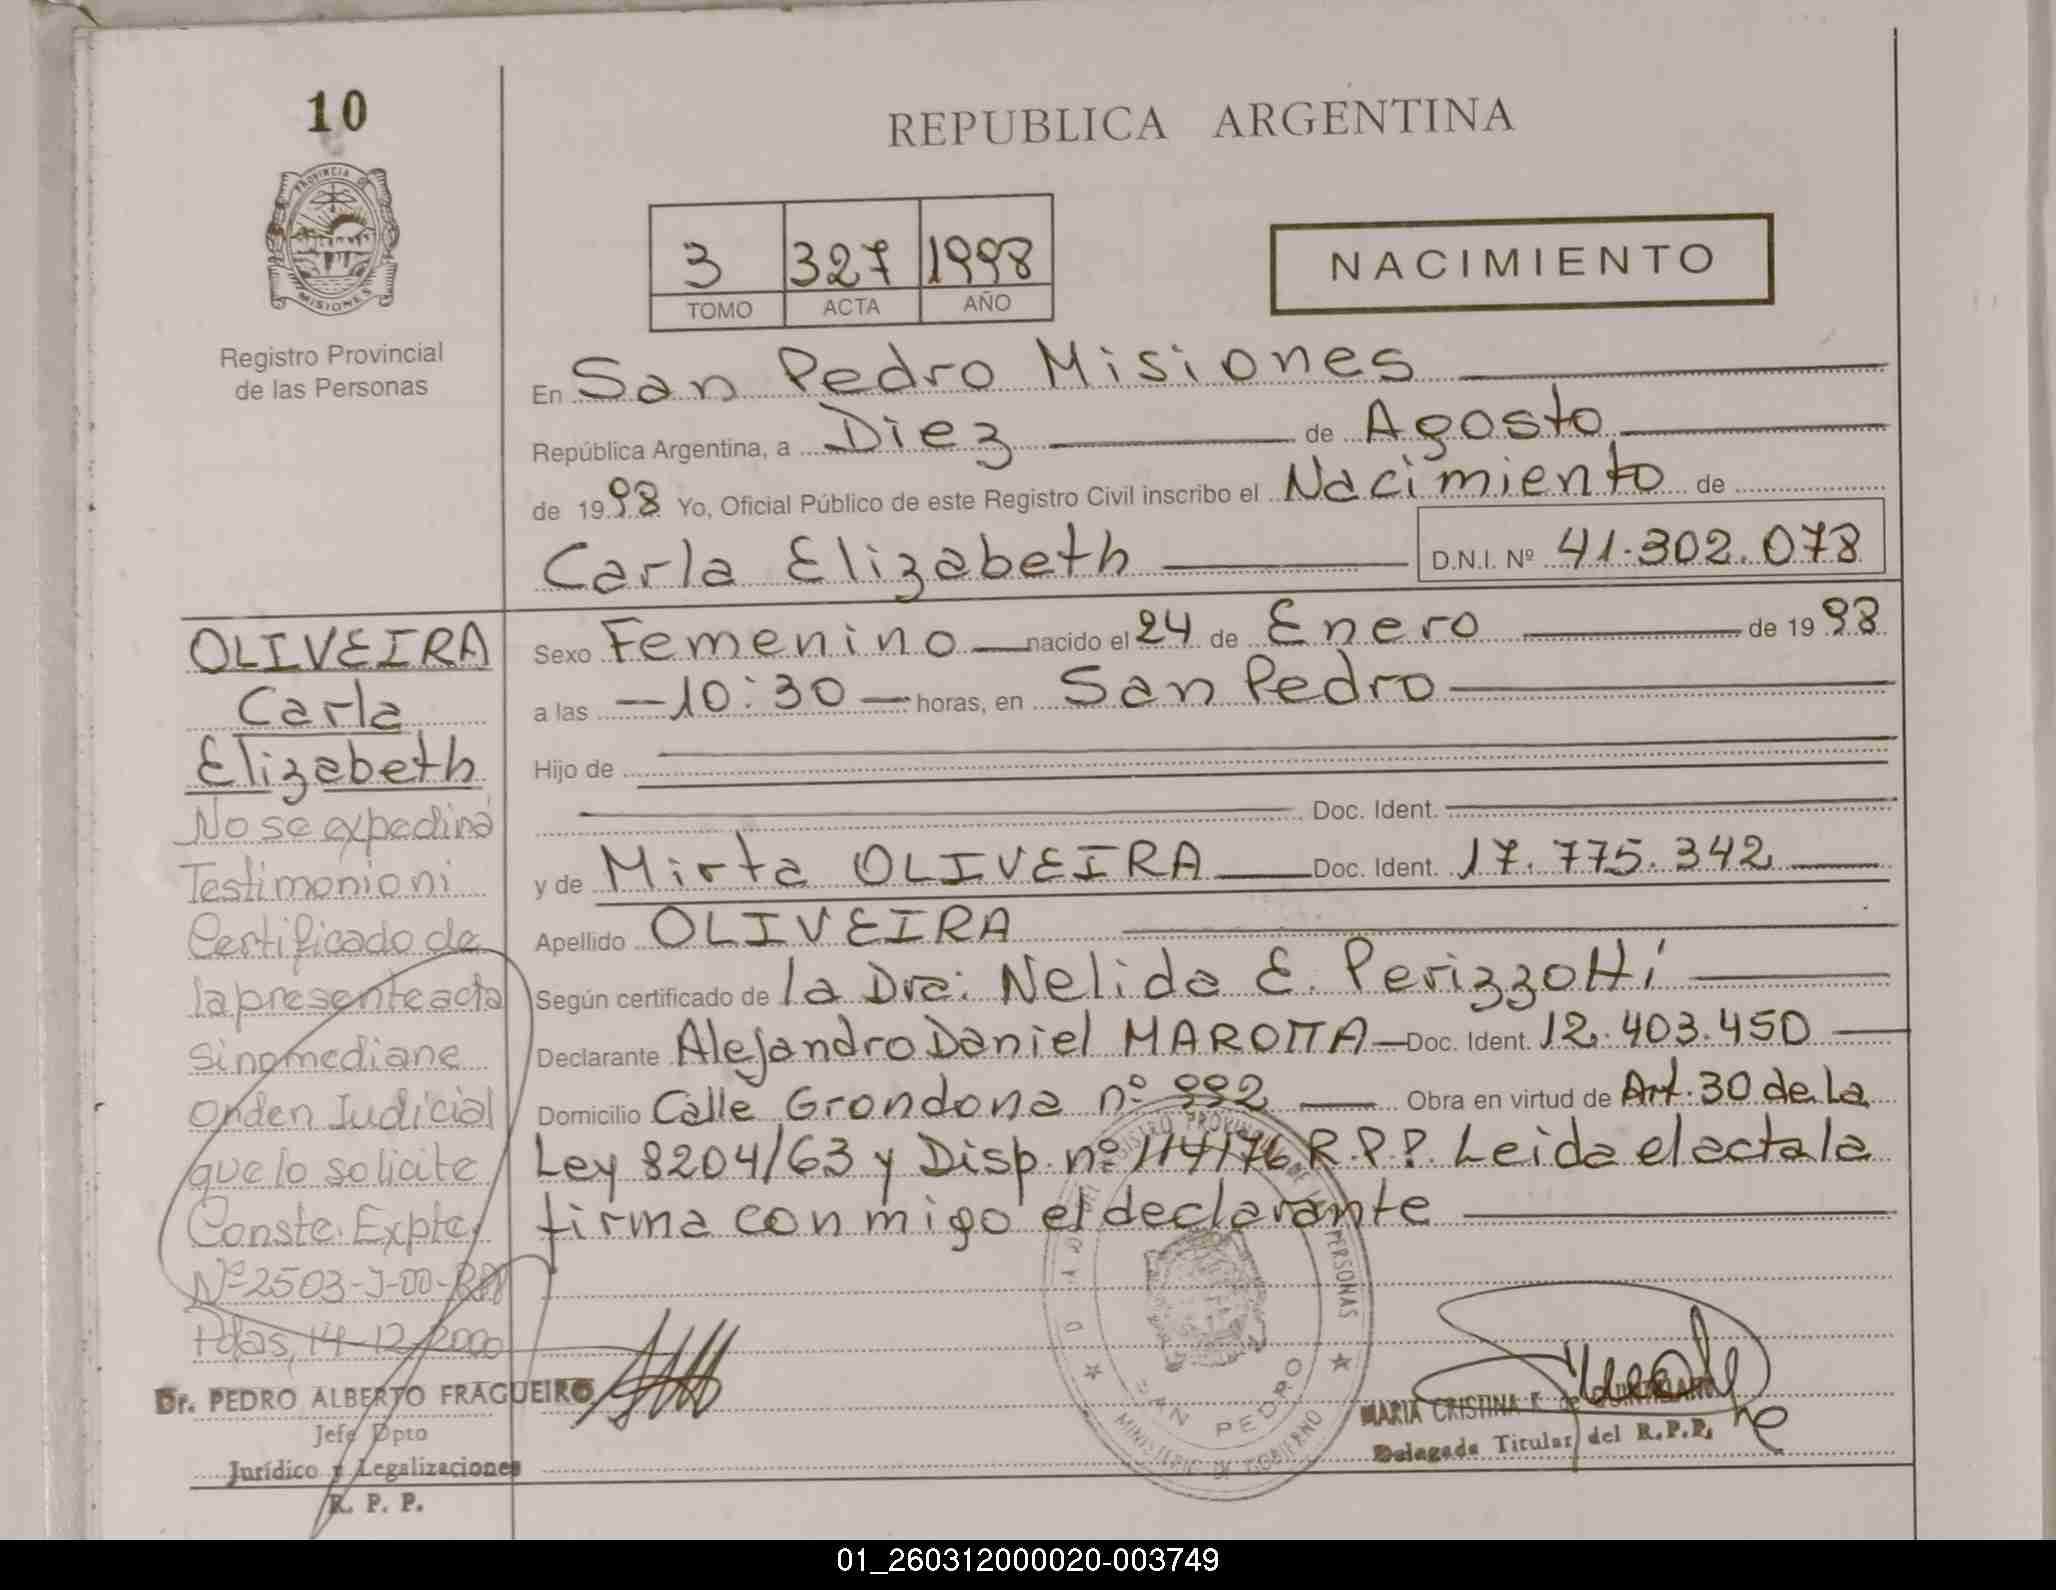 10
REPUBLICA ARGENTINA
PROVINCIA DE
MISIONES
Registro Provincial
de las Personas
3 327 1998
TOMO ACTA AÑO
NACIMIENTO
En San Pedro Misiones
República Argentina, a Diez de Agosto
de 1998 Yo, Oficial Público de este Registro Civil inscribo el Nacimiento de
Carla Elizabeth D.N.I. Nº 41.302.078
OLIVEIRA
Carla
Elizabeth
No se expedirá
Testimonio ni
Certificado de
la presente acta
sino mediane
Orden Judicial
que lo solicite
Conste. Expte.
Nº 2503-J-00-
Pdas, 14-12-2000
Dr. PEDRO ALBERTO FRAGUEIRO
Jefe Dpto
Jurídico y Legalizaciones
R. P. P.
Sexo Femenino nacido el 24 de Enero de 1998
a las 10:30 horas, en San Pedro
Hijo de
Doc. Ident.
y de Mirta OLIVEIRA Doc. Ident. 17.775.342
Apellido OLIVEIRA
Según certificado de la Dra: Nelida E. Perizzotti
Declarante Alejandro Daniel MAROTTA Doc. Ident. 12.403.450
Domicilio Calle Grondona nº 992 Obra en virtud de Art. 30 de La
Ley 8204/63 y Disp. nº 114/76 R.P.P. Leida el acta la
firma conmigo el declarante
REGISTRO PROVINCIAL DE LAS PERSONAS
SAN PEDRO
MINISTERIO DE GOBIERNO
MARIA CRISTINA F. de
Delegada Titular del R.P.P.
01_260312000020-003749